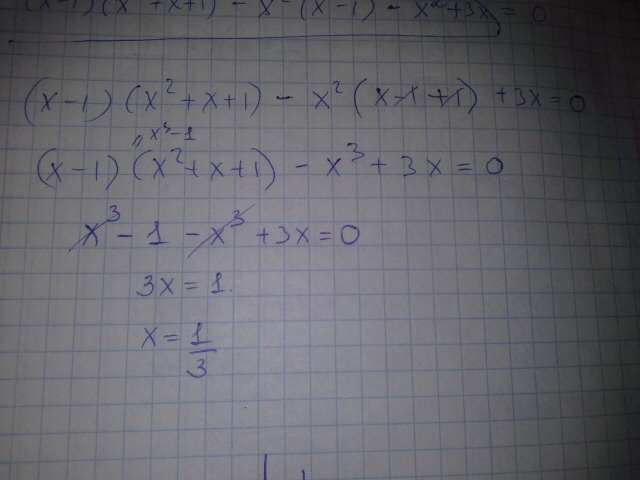 (x-1)(x²+x+1) - x²(x-1) - x²+3x = 0
(x-1)(x²+x+1) - x²(x-1+1)+3x=0
" x³-1
(x-1)(x²+x+1) - x³+3x=0
x³-1-x³+3x=0
3x=1.
x=1/3